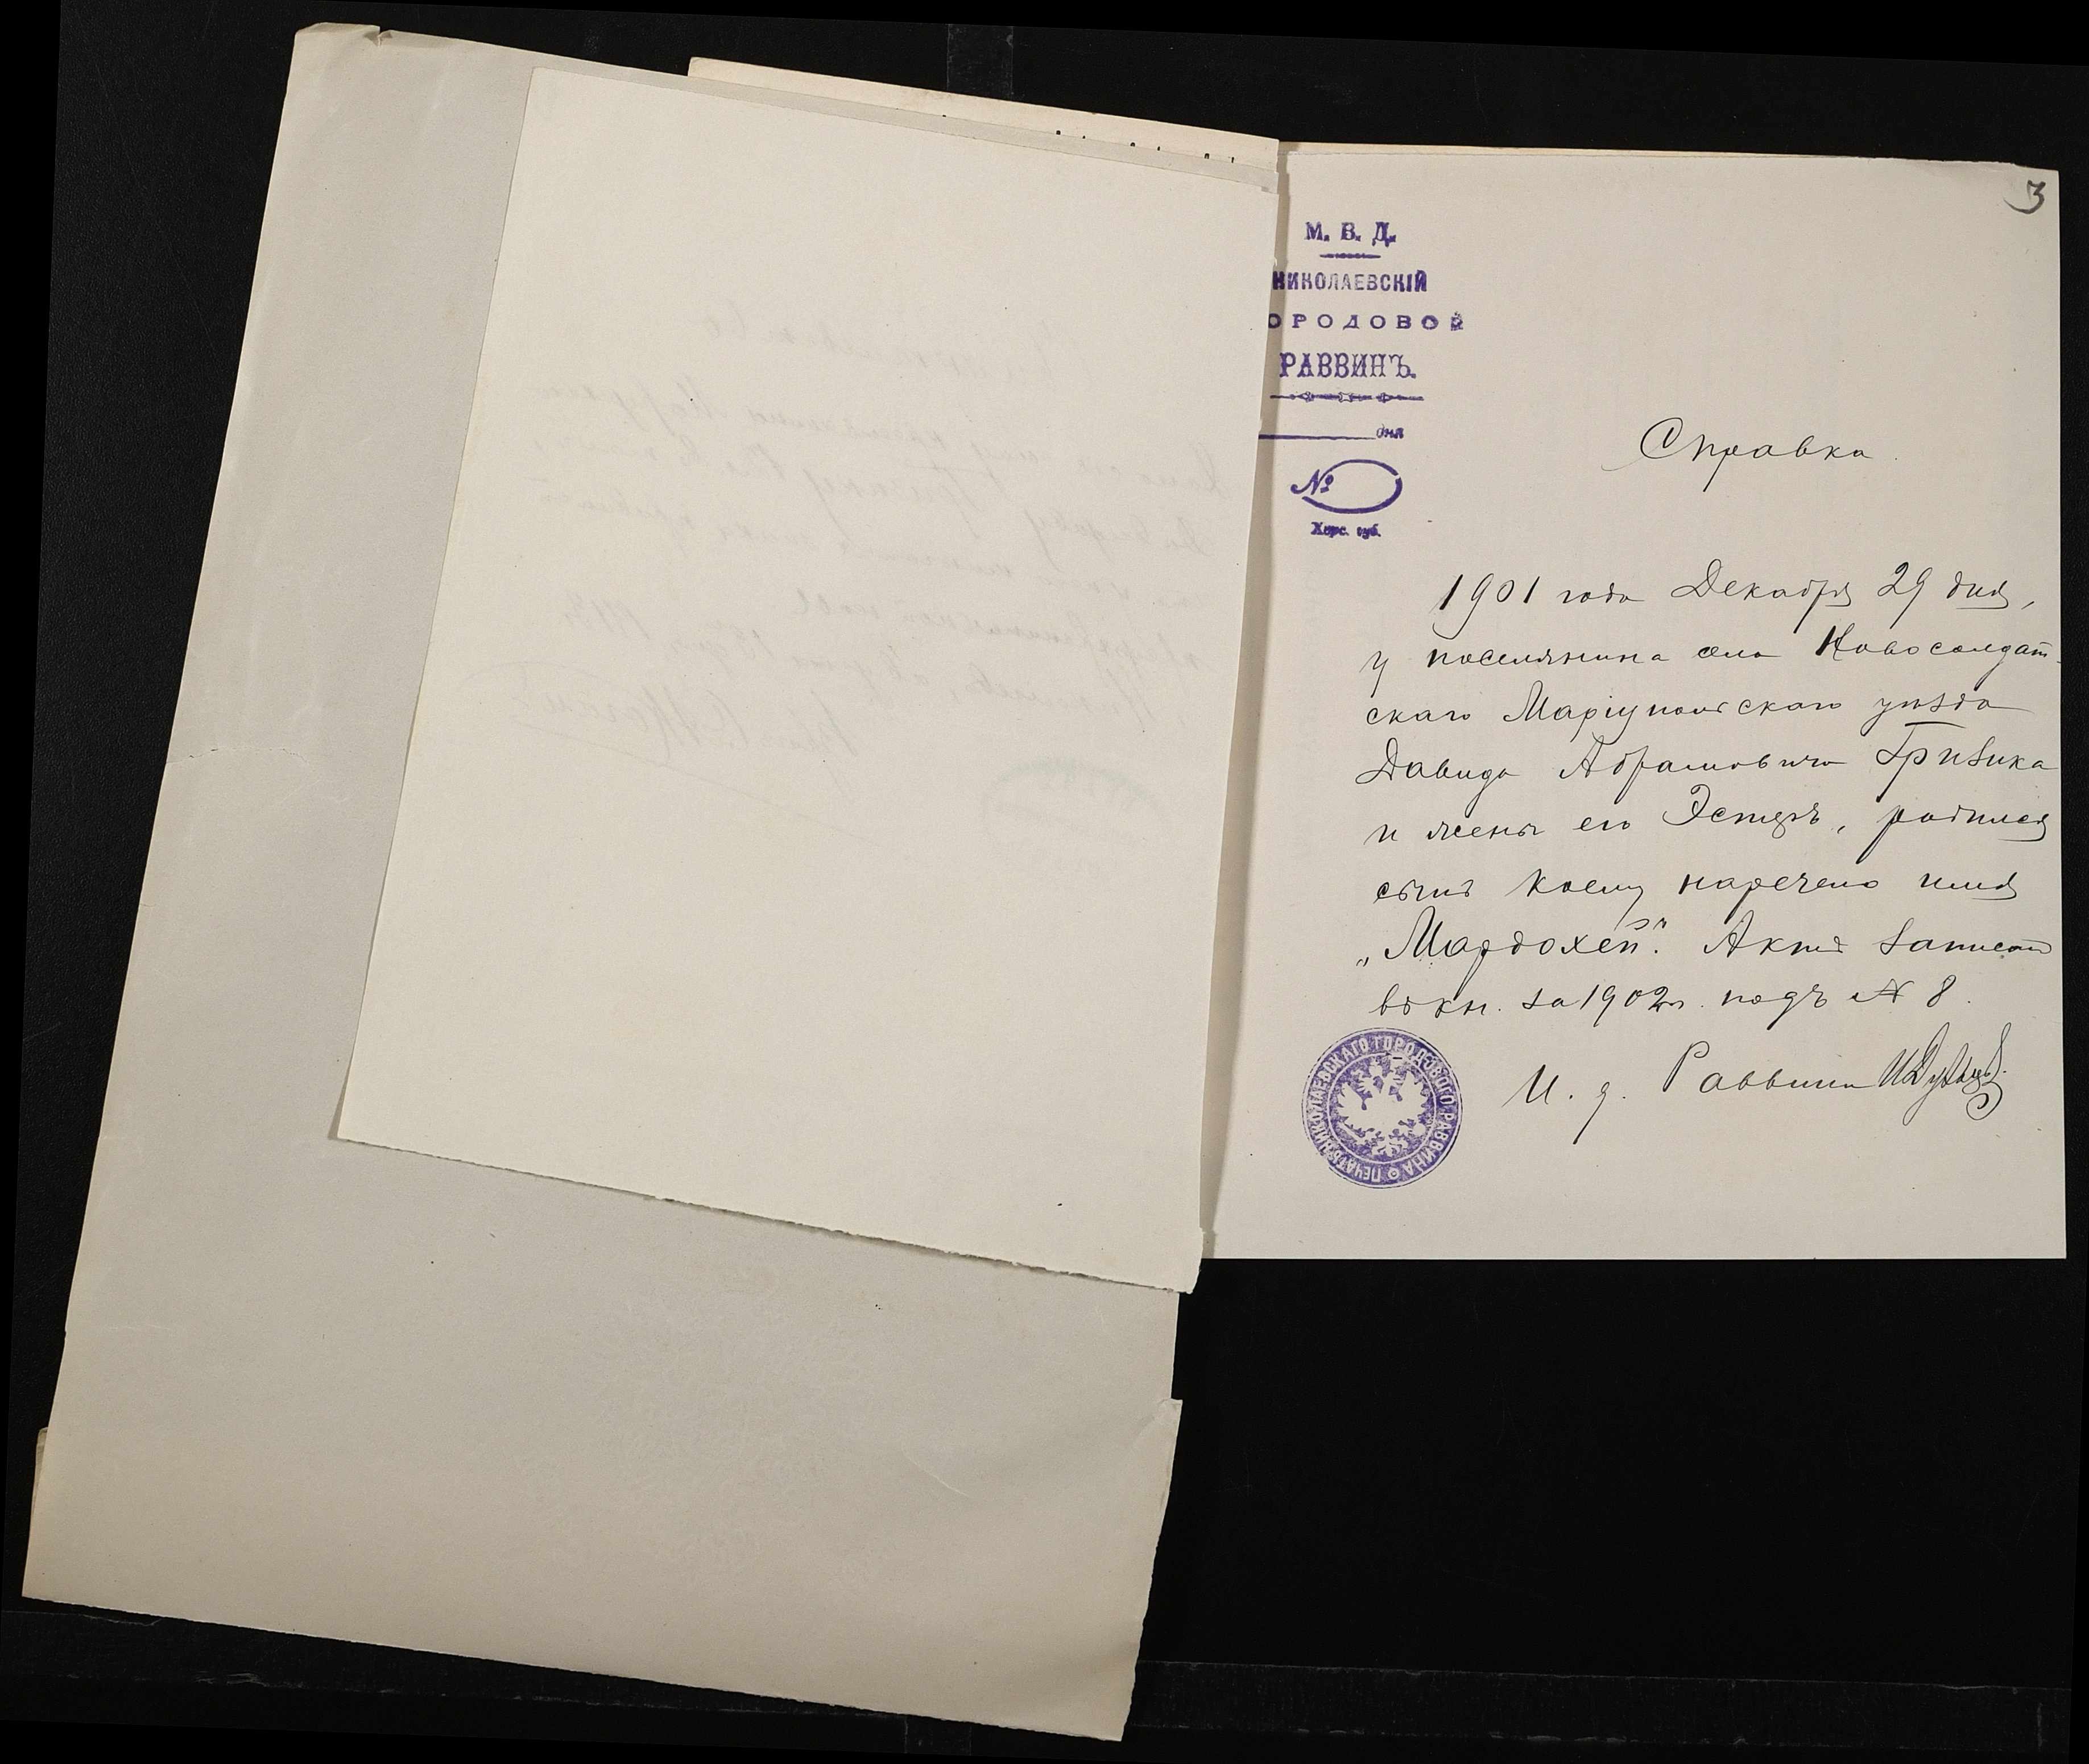 3
М. В. Д.
НИКОЛАЕВСКІЙ
ОРОДОВОЙ
РАВВИНЪ.
дня
№
Херс. губ.
Справка
1901 года Декабря 29 дня,
у поселянина села Новосолдат-
скаго Маріупольскаго уѣзда
Давида Абрамовича Гризика
и жены его Эстеръ, родился
сынъ коему наречено имя
„Мардохей". Актъ записанъ
въ кн. за 1902 г. подъ № 8.
И. д. Раввина
ПЕЧАТЬ НИКОЛАЕВСКАГО ГОРОДОВОГО РАВВИНА